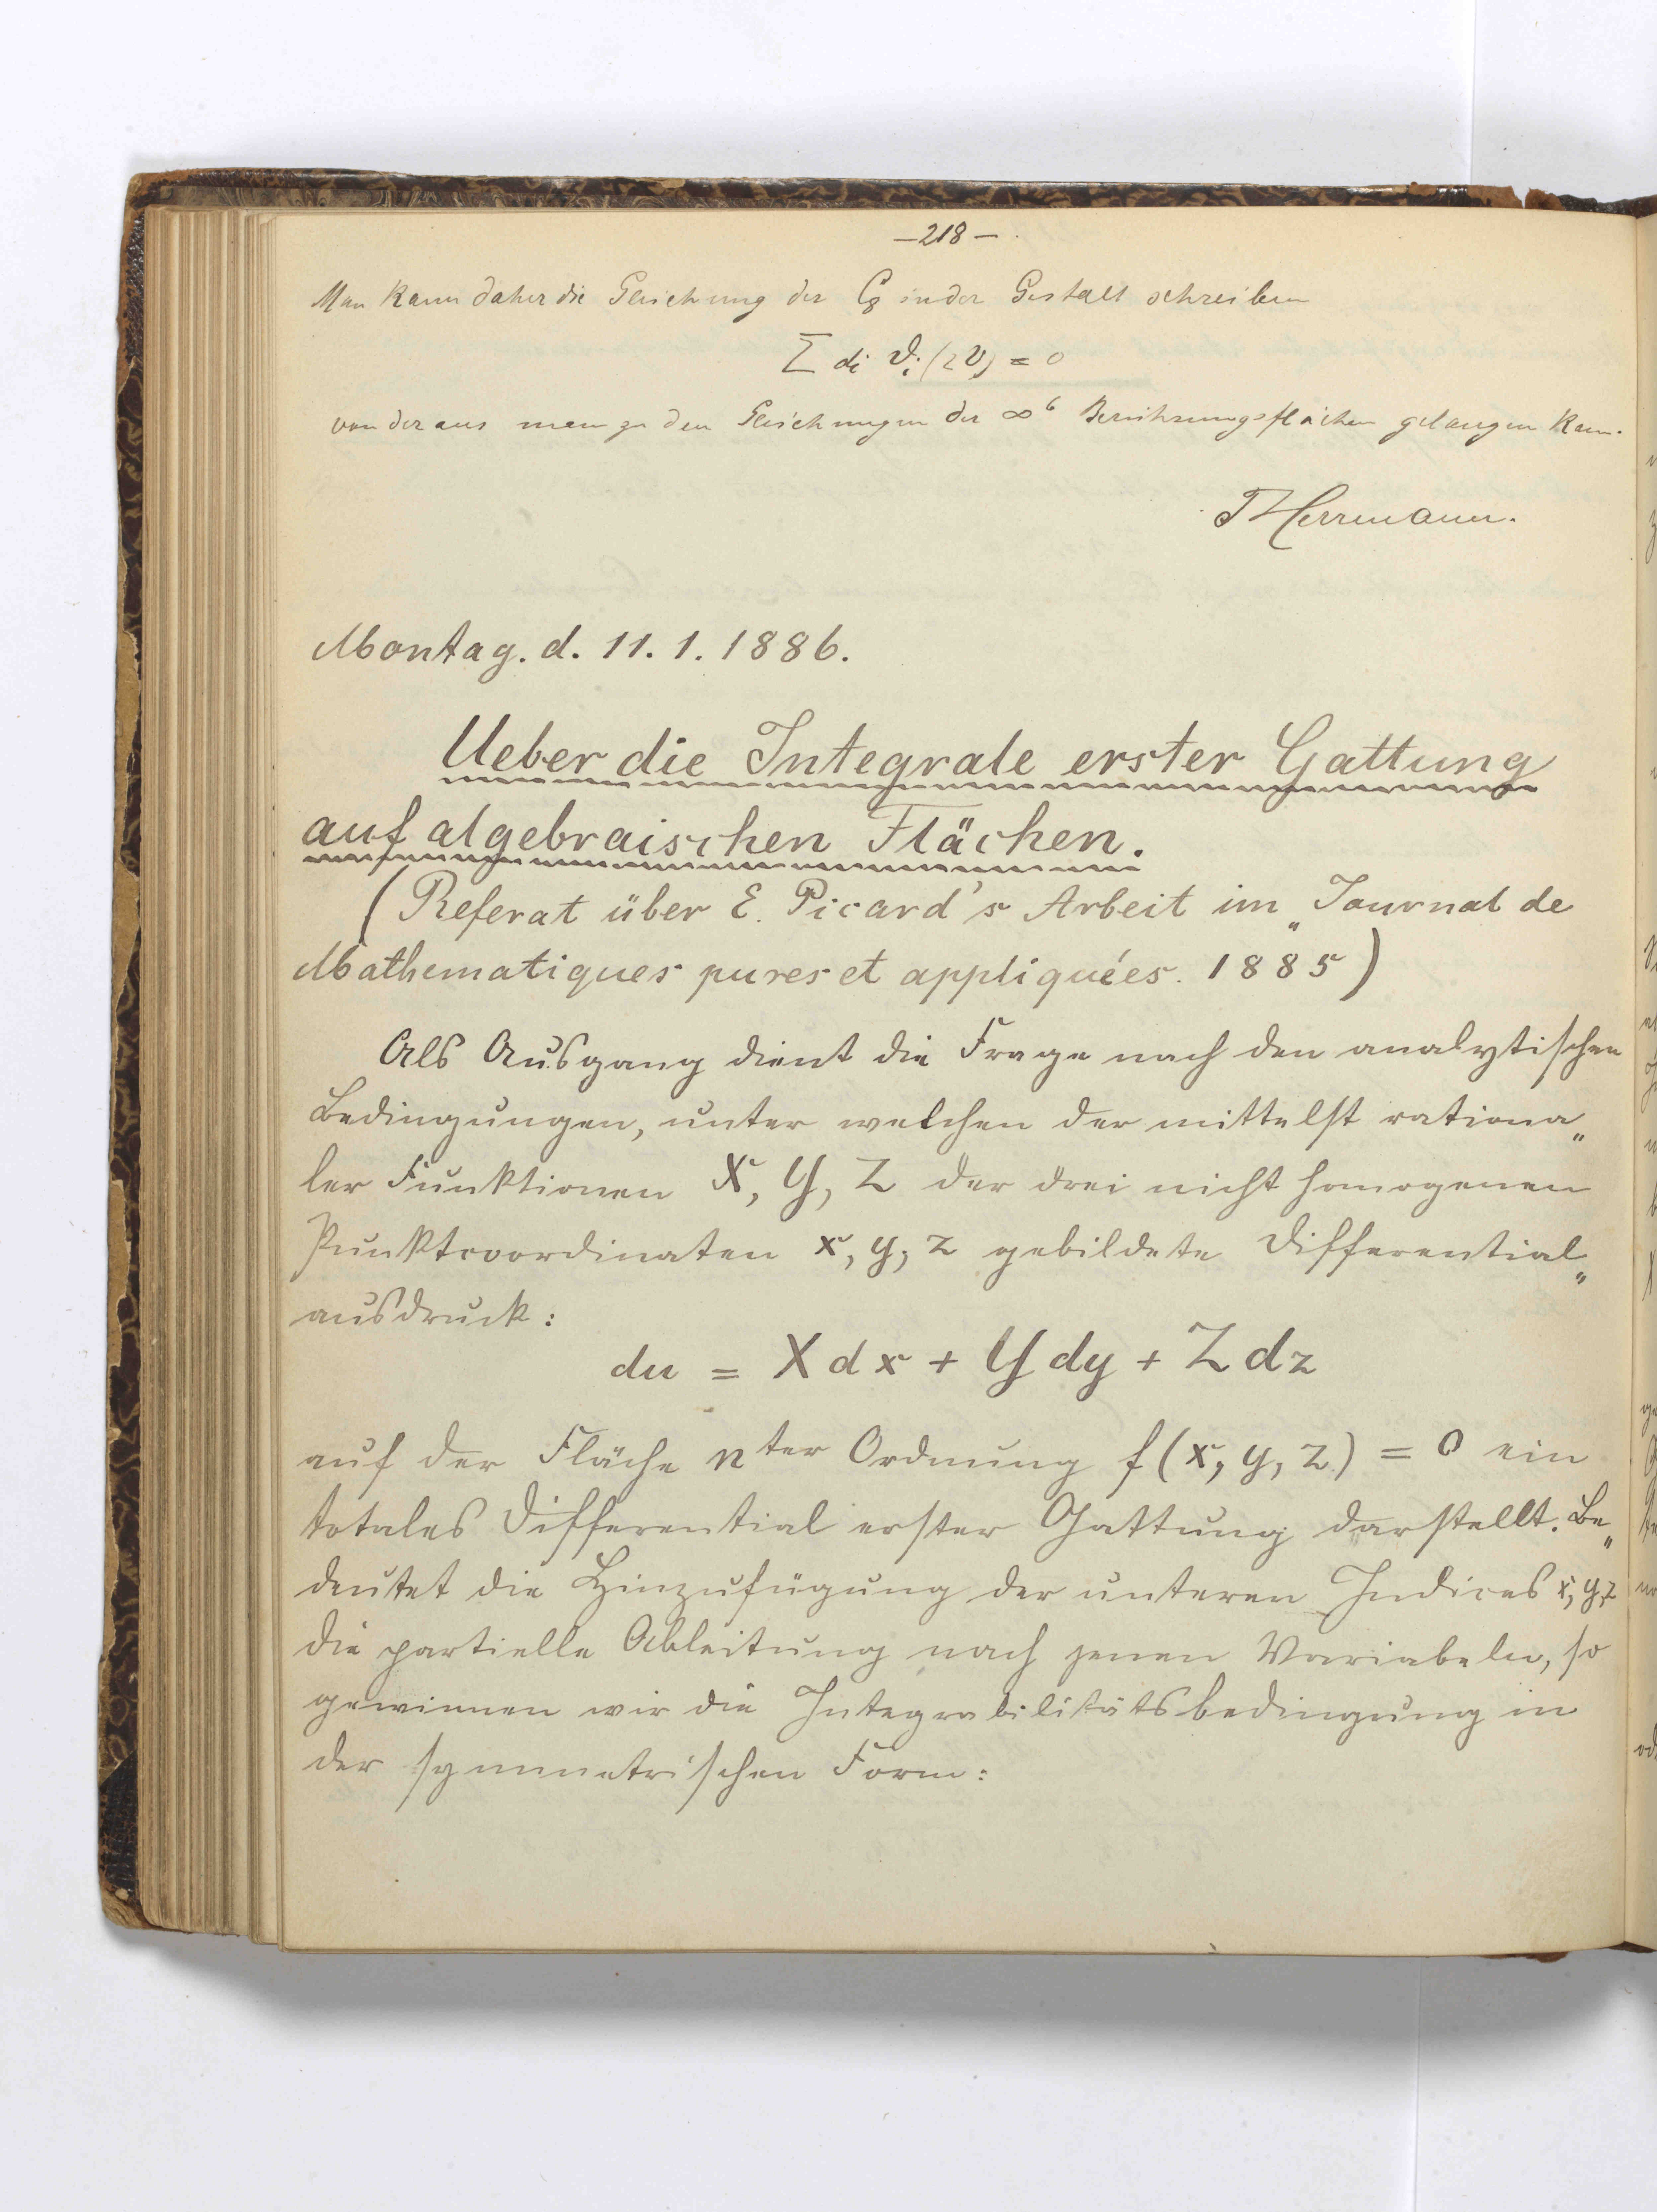 —218—
Man kann daher die Gleichung der C₈ in der Gestalt schreiben
Σ di ϑi (2v) = 0
von der aus man zu den Gleichungen der ∞⁶ Berührungsflächen gelangen kann.
THerrmann.
Montag. d. 11. 1. 1886.
Ueber die Integrale erster Gattung
auf algebraischen Flächen.
(Referat über E. Picard's Arbeit im „Journal de
Mathematiques pures et appliquées. 1885)
Als Ausgang dient die Frage nach den analytischen
Bedingungen, unter welchen der mittelst rationa„
ler Funktionen X, Y, Z der drei nicht homogenen
Punktcoordinaten x, y, z gebildete Differential„
ausdruck:
du = X dx + Y dy + Z dz
auf der Fläche nter Ordnung f(x, y, z) = 0 ein
totales Differential erster Gattung darstellt. Be„
deutet die Hinzufügung der unteren Indices x, y, z
die partielle Ableitung nach jenen Variabeln, so
gewinnen wir die Integrabilitätsbedingung in
der symmetrischen Form: